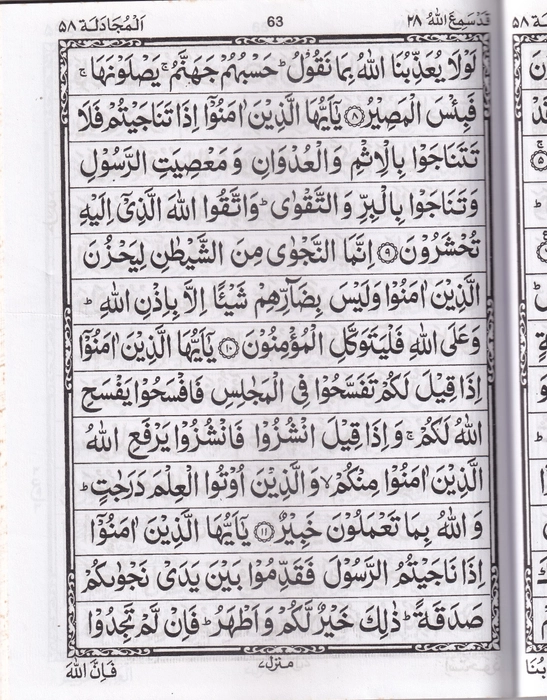 قَدْ سَمِعَ اللّٰهُ ۲۸
63
اَلْمُجَادَلَة ۵۸
لَوْلَا يُعَذِّبُنَا اللّٰهُ بِمَا نَقُوْلُ ؕ حَسْبُهُمْ جَهَنَّمُ ۚ يَصْلَوْنَهَا ۚ
فَبِئْسَ الْمَصِيْرُ ۝۸ يٰۤاَيُّهَا الَّذِيْنَ اٰمَنُوْۤا اِذَا تَنَاجَيْتُمْ فَلَا
تَتَنَاجَوْا بِالْاِثْمِ وَالْعُدْوَانِ وَمَعْصِيَتِ الرَّسُوْلِ
وَتَنَاجَوْا بِالْبِرِّ وَالتَّقْوٰى ؕ وَاتَّقُوا اللّٰهَ الَّذِيْۤ اِلَيْهِ
تُحْشَرُوْنَ ۝۹ اِنَّمَا النَّجْوٰى مِنَ الشَّيْطٰنِ لِيَحْزُنَ
الَّذِيْنَ اٰمَنُوْا وَلَيْسَ بِضَآرِّهِمْ شَيْـًٔا اِلَّا بِاِذْنِ اللّٰهِ ؕ
وَعَلَى اللّٰهِ فَلْيَتَوَكَّلِ الْمُؤْمِنُوْنَ ۝۱۰ يٰۤاَيُّهَا الَّذِيْنَ اٰمَنُوْۤا
اِذَا قِيْلَ لَكُمْ تَفَسَّحُوْا فِى الْمَجٰلِسِ فَافْسَحُوْا يَفْسَحِ
اللّٰهُ لَكُمْ ۚ وَاِذَا قِيْلَ انْشُزُوْا فَانْشُزُوْا يَرْفَعِ اللّٰهُ
الَّذِيْنَ اٰمَنُوْا مِنْكُمْ ۙ وَالَّذِيْنَ اُوْتُوا الْعِلْمَ دَرَجٰتٍ ؕ
وَاللّٰهُ بِمَا تَعْمَلُوْنَ خَبِيْرٌ ۝۱۱ يٰۤاَيُّهَا الَّذِيْنَ اٰمَنُوْۤا
اِذَا نَاجَيْتُمُ الرَّسُوْلَ فَقَدِّمُوْا بَيْنَ يَدَىْ نَجْوٰىكُمْ
صَدَقَةً ؕ ذٰلِكَ خَيْرٌ لَّكُمْ وَاَطْهَرُ ؕ فَاِنْ لَّمْ تَجِدُوْا
منزل ۷
فَاِنَّ اللّٰهَ